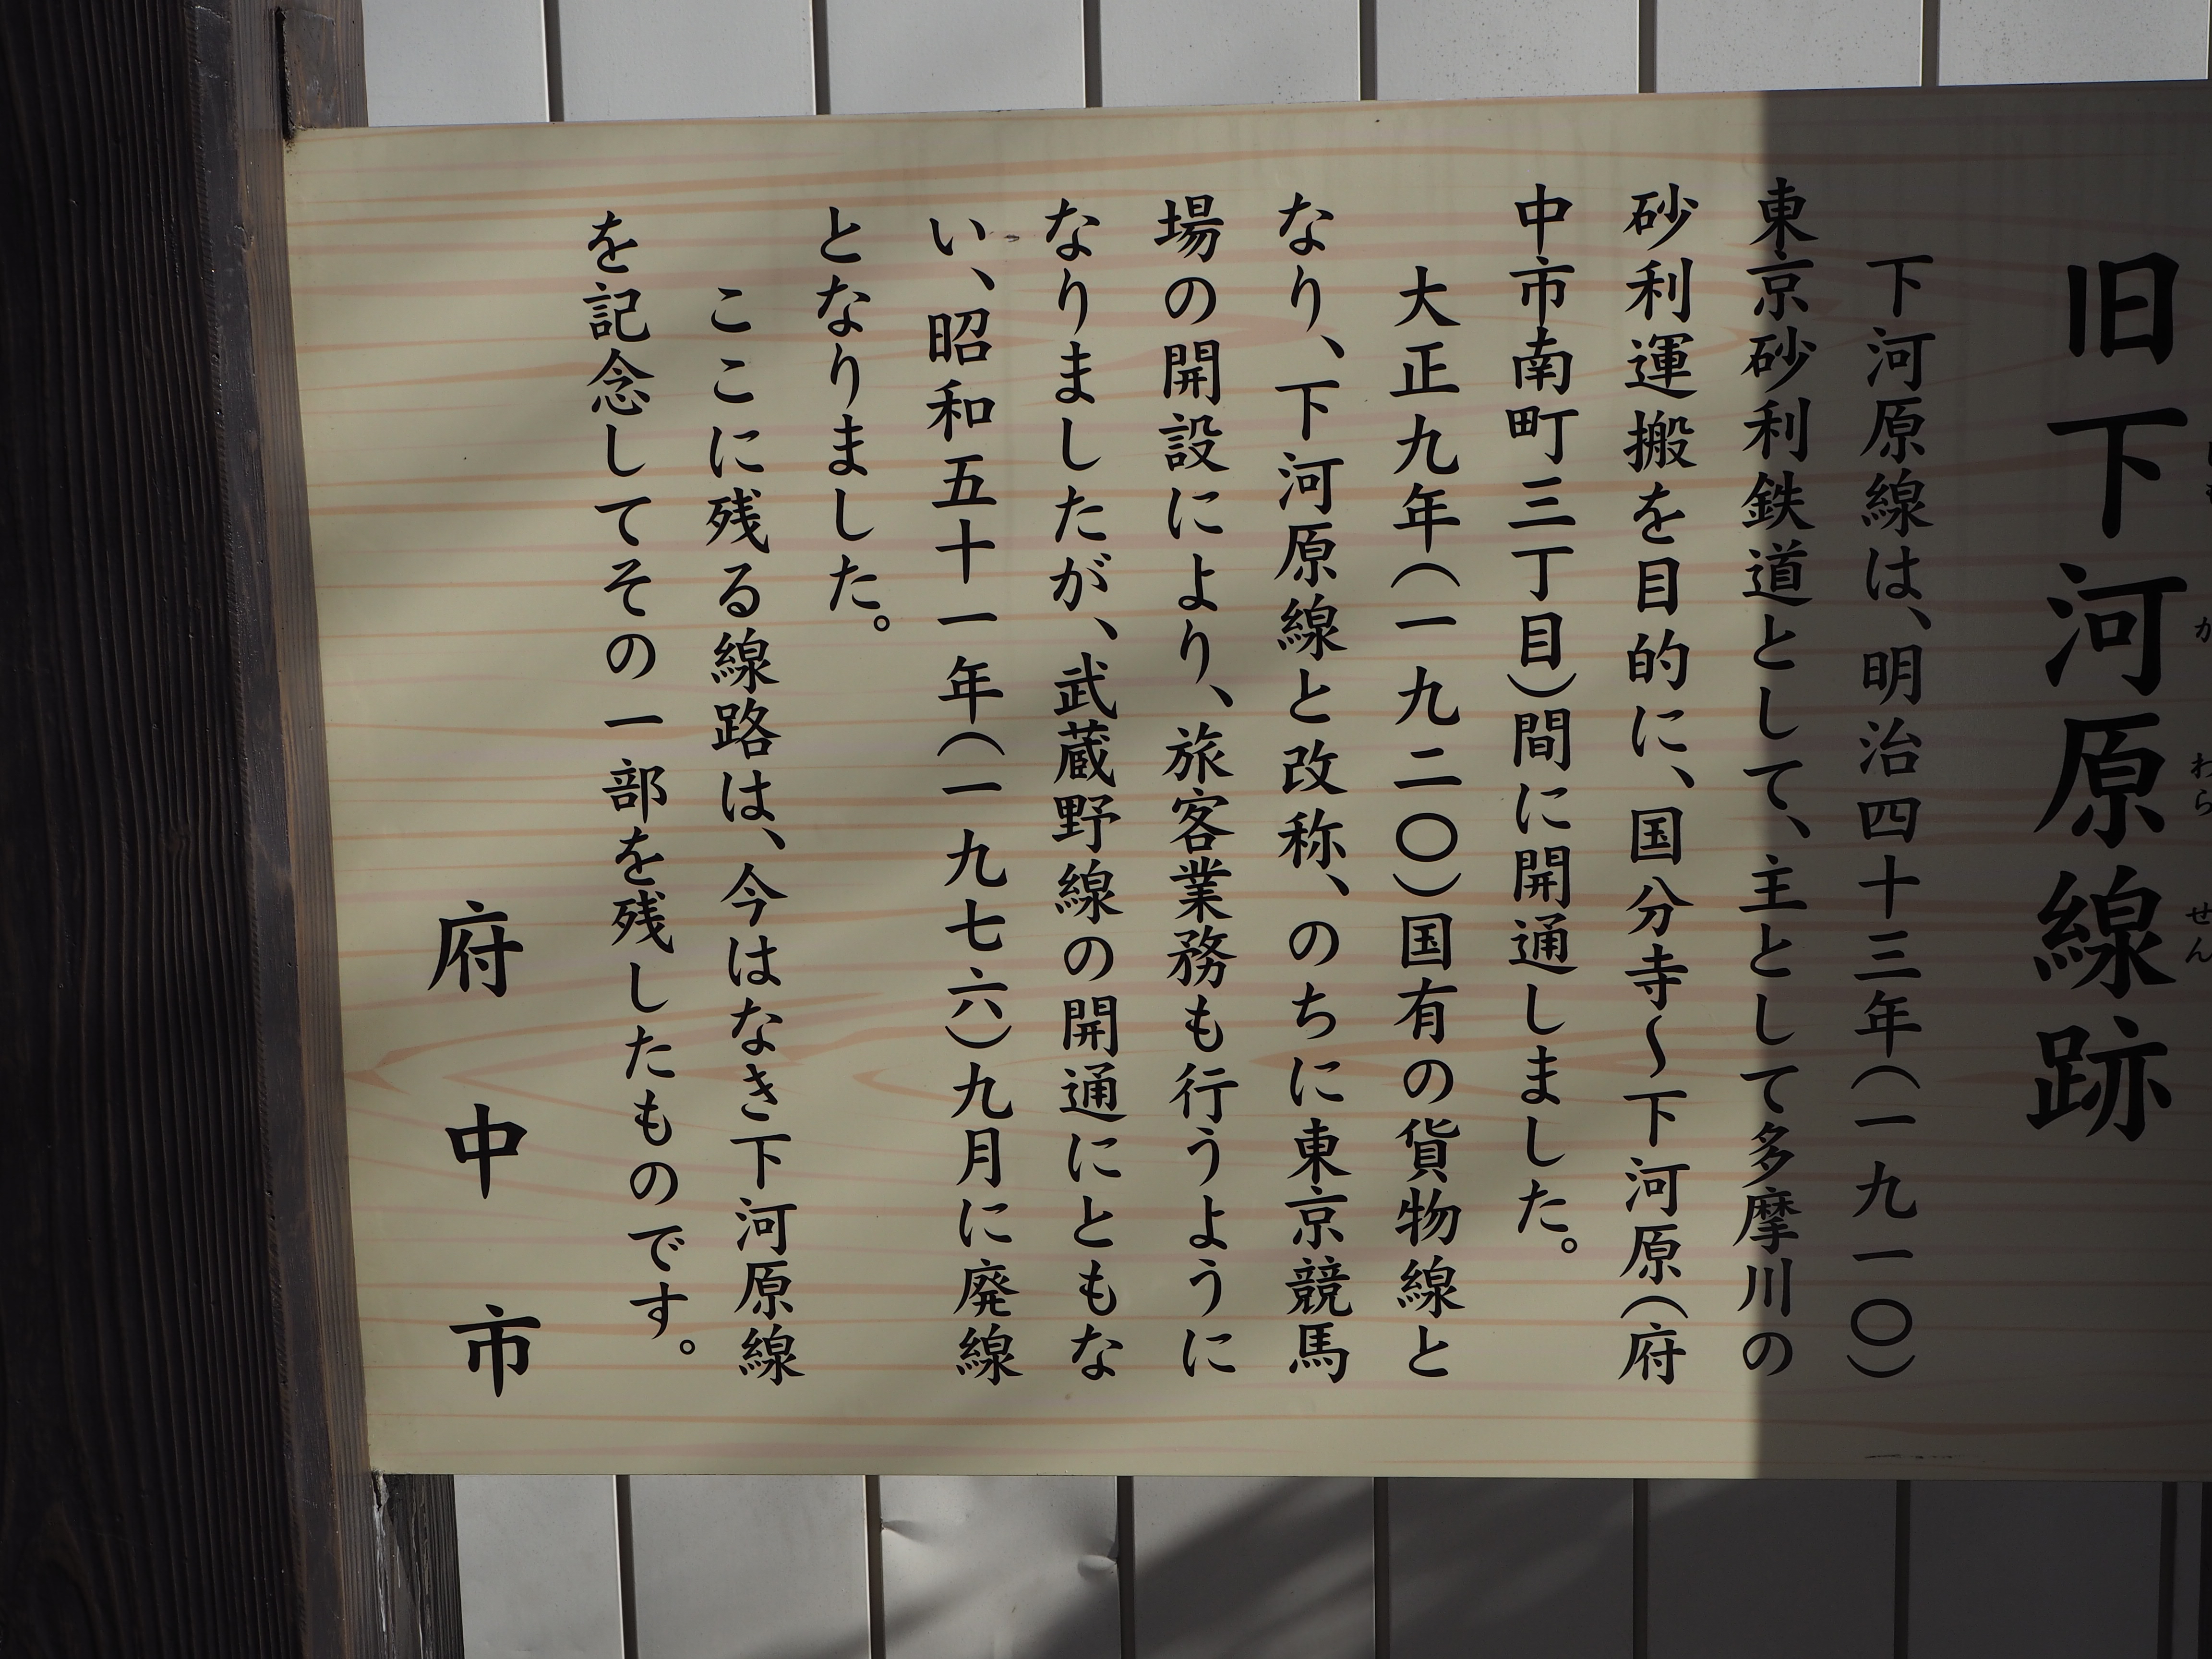 旧下河原線跡
か わら せん
下河原線は、明治四十三年(一九一〇)
東京砂利鉄道として、主として多摩川の
砂利運搬を目的に、国分寺〜下河原(府
中市南町三丁目)間に開通しました。
大正九年(一九二〇)国有の貨物線と
なり、下河原線と改称、のちに東京競馬
場の開設により、旅客業務も行うように
なりましたが、武蔵野線の開通にともな
い、昭和五十一年(一九七六)九月に廃線
となりました。
ここに残る線路は、今はなき下河原線
を記念してその一部を残したものです。
府中市